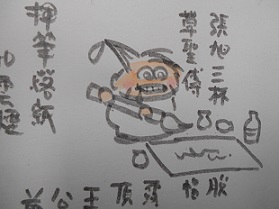 張旭三杯
草聖傳
脫帽露頂王公前
揮筆落紙
如雲煙